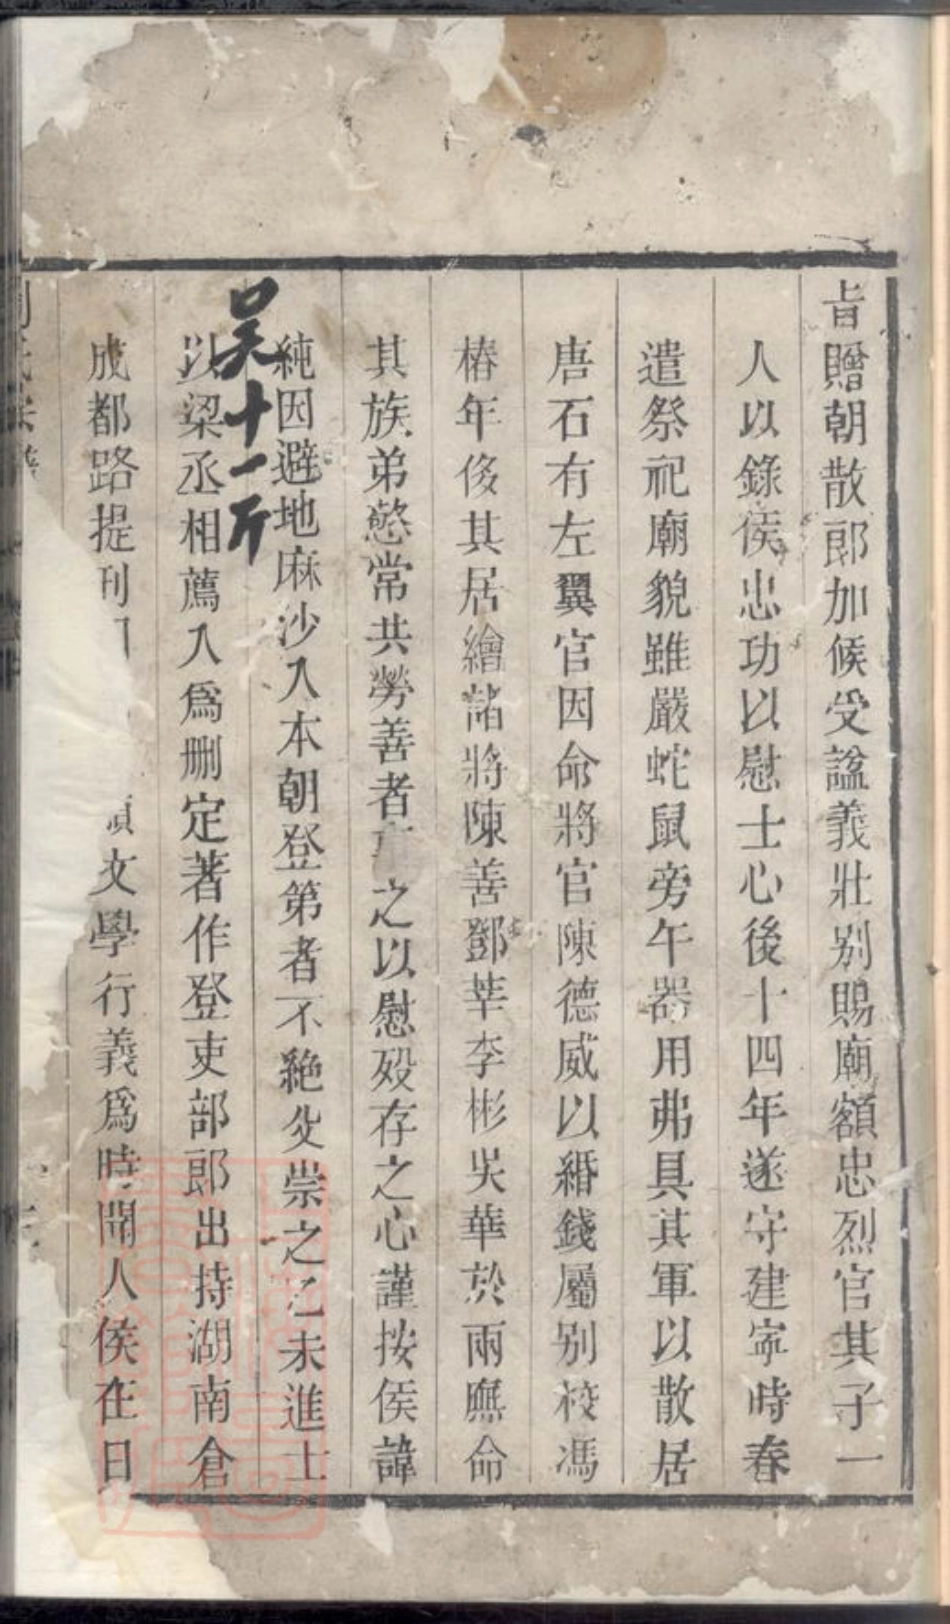 旨贈朝散郎加候受諡義壯别賜廟額忠烈官其子一
人以錄侯忠功以慰士心後十四年遂守建寧時春
遣祭祀廟貌雖嚴蛇鼠旁午器用弗具其軍以散居
唐石有左翼官因命將官陳德威以緡錢屬别校馮
椿年俊其居繪諸將陳善鄧莘李彬吳華於兩廡命
其族弟慾常共勞善者之以慰殁存之心謹按侯諱
純因避地麻沙入本朝登第者不絶父崇之乙未進士
吴十一斤
以梁丞相薦入爲删定著作登吏部郎出持湖南倉
成都路提刑文學行義爲時聞人侯在日